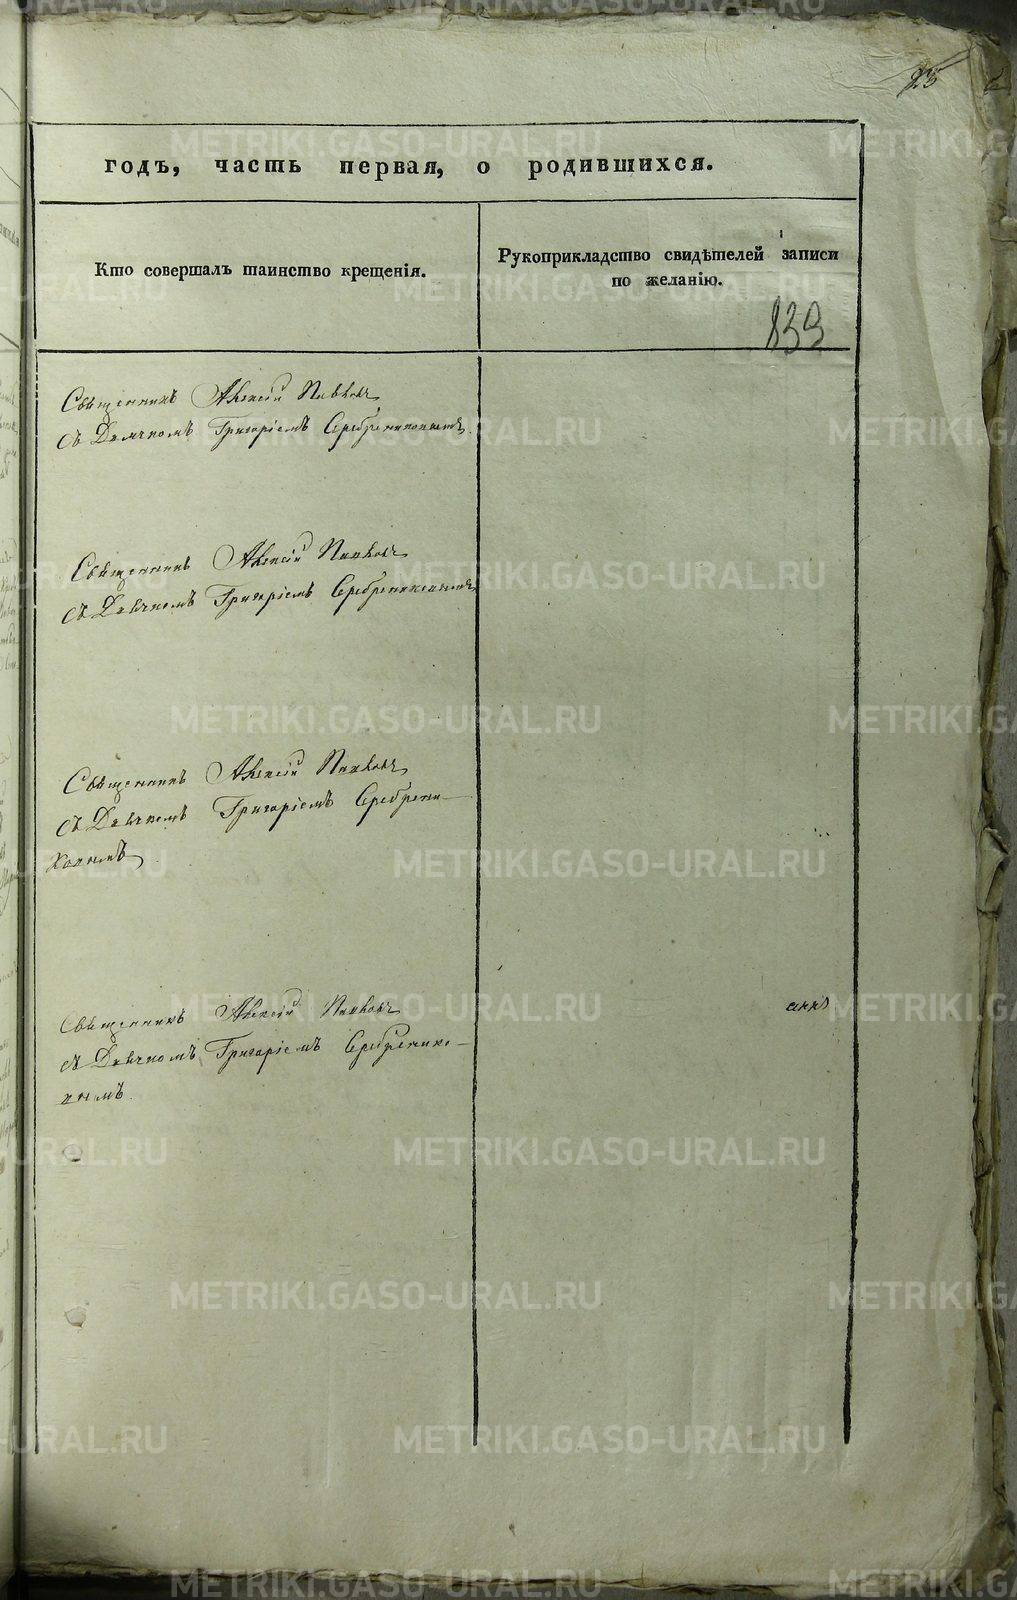 годъ, часть первая, о родившихся.
Кто совершалъ таинство крещенія.
Рукоприкладство свидѣтелей записи
по желанію.
839
Священникъ Алексій Павловъ
съ Дьячкомъ Григоріемъ Серебрениковымъ
Священникъ Алексій Павловъ
съ Дьячкомъ Григоріемъ Серебрениковымъ
Священникъ Алексій Павловъ
съ Дьячкомъ Григоріемъ Серебрени-
ковымъ
Священникъ Алексій Павловъ
съ Дьячкомъ Григоріемъ Серебрнико-
вымъ.
METRIKI.GASO-URAL.RU